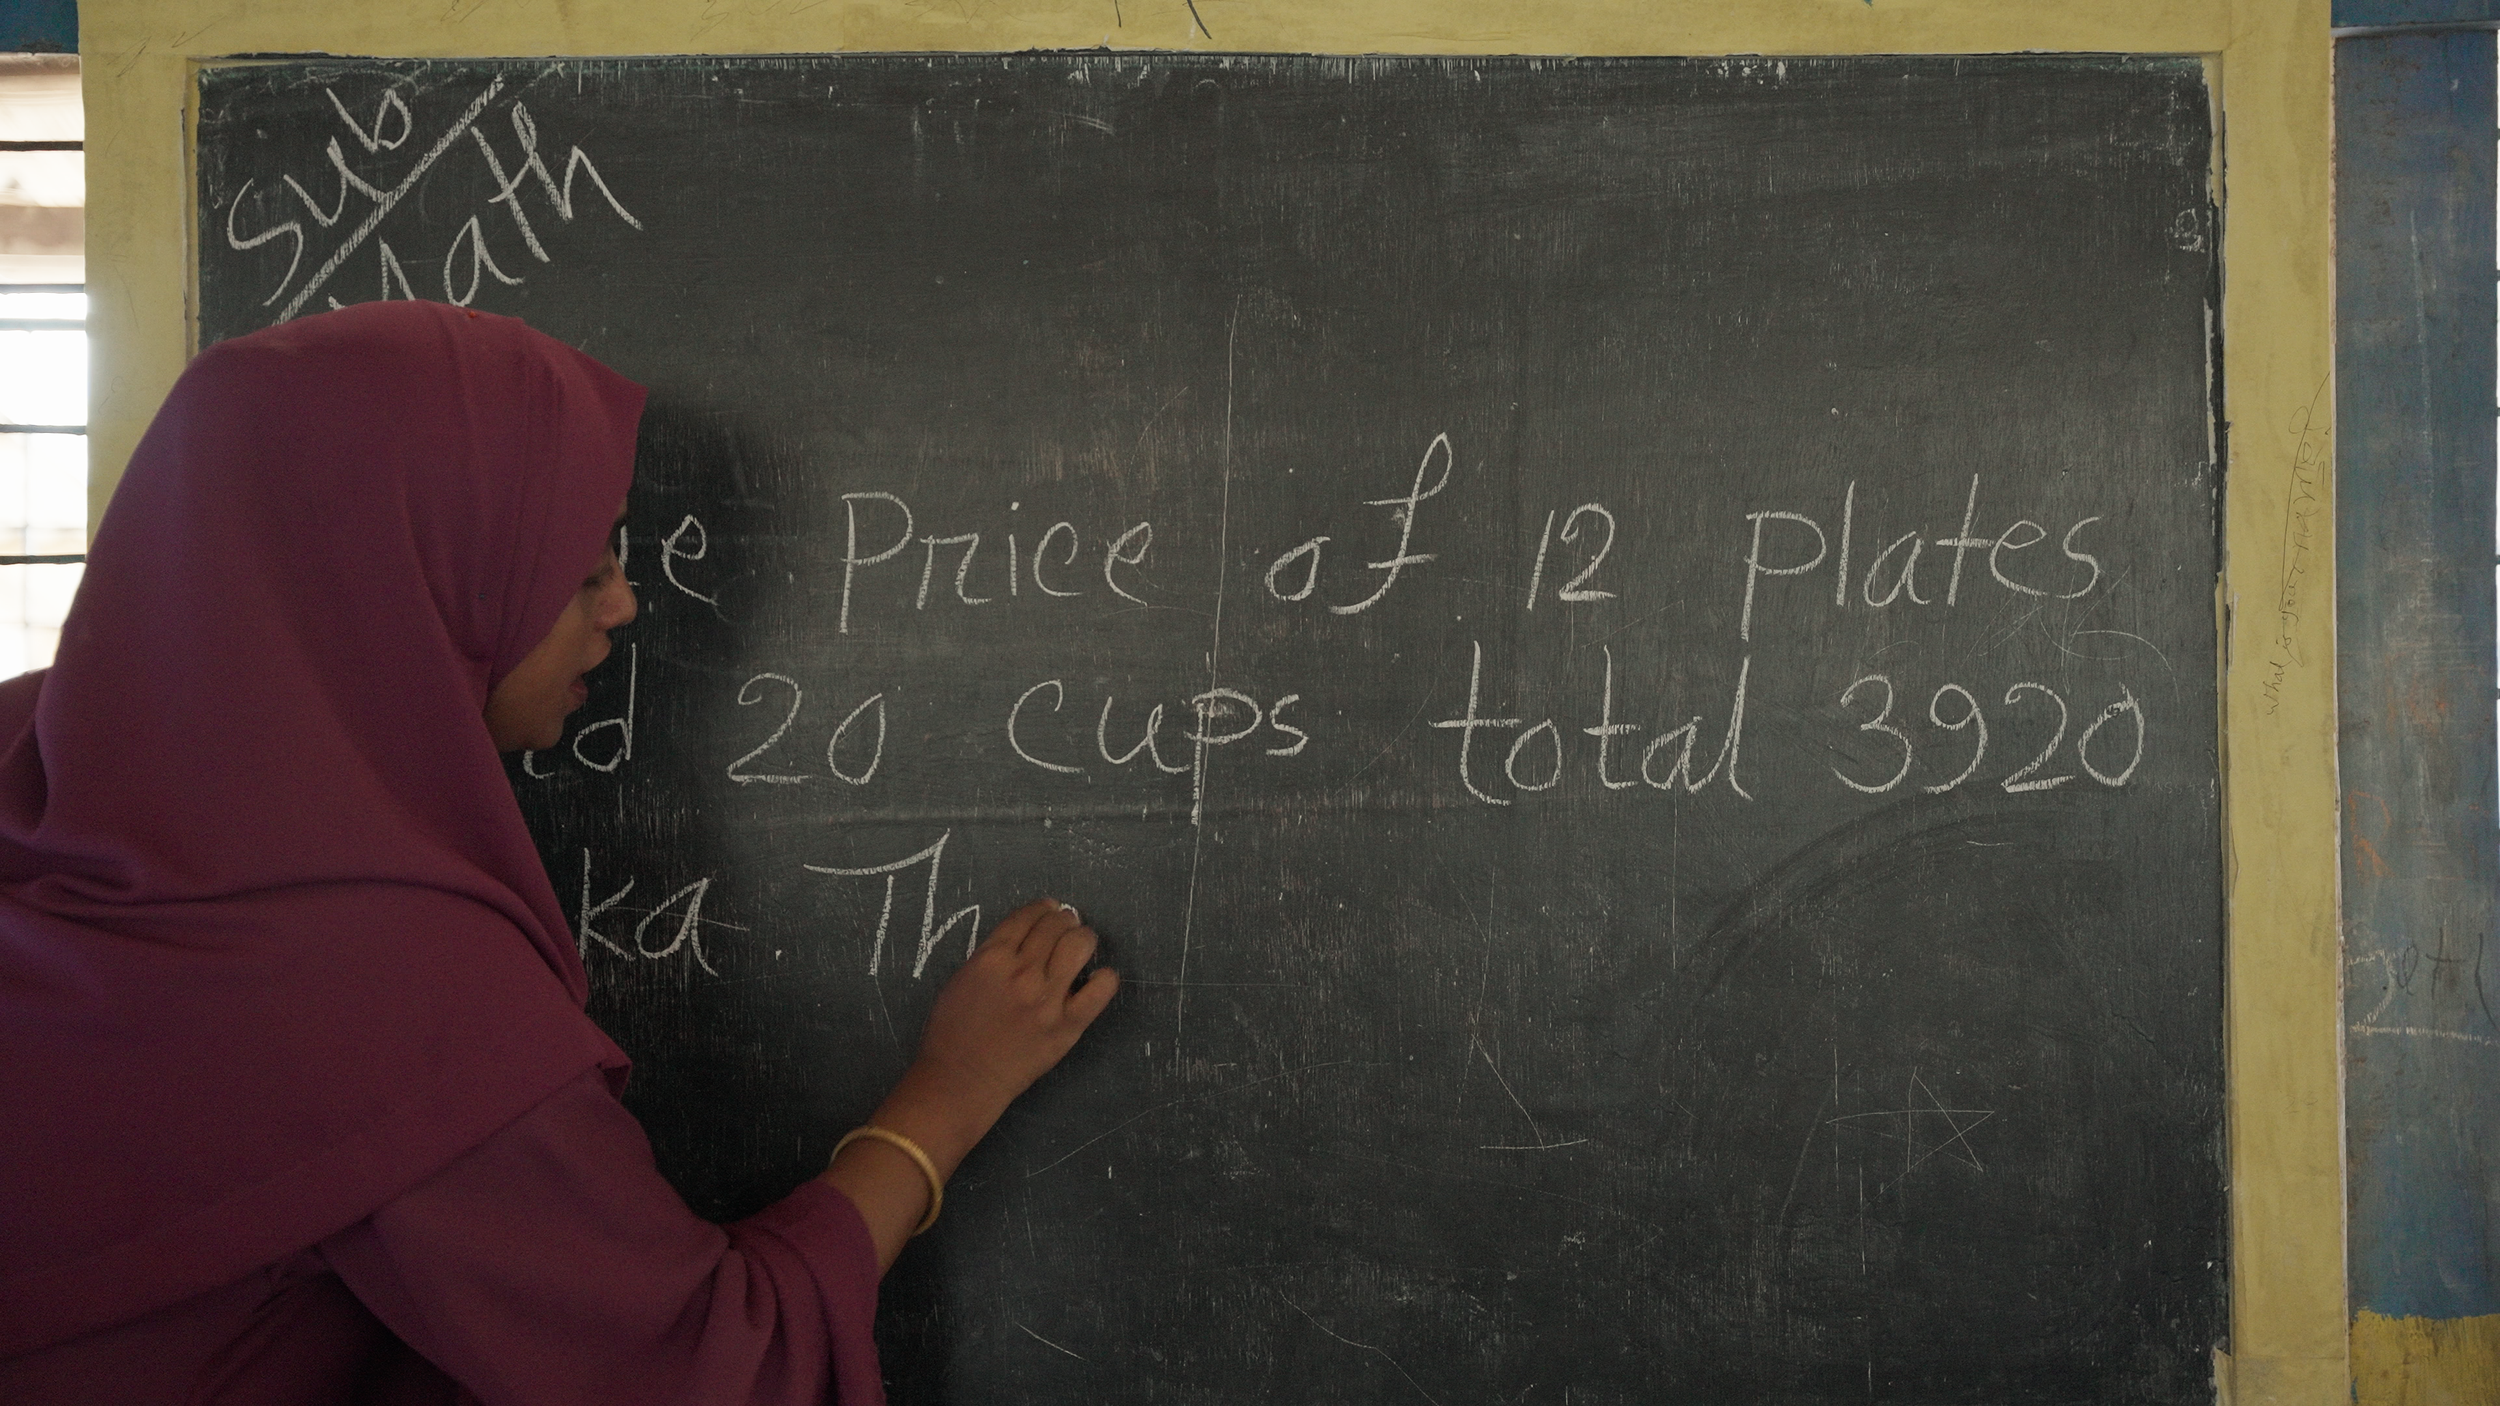 Sub
Math
Price of 12 plates
20 cups total 3920
ka. Th
What is your name